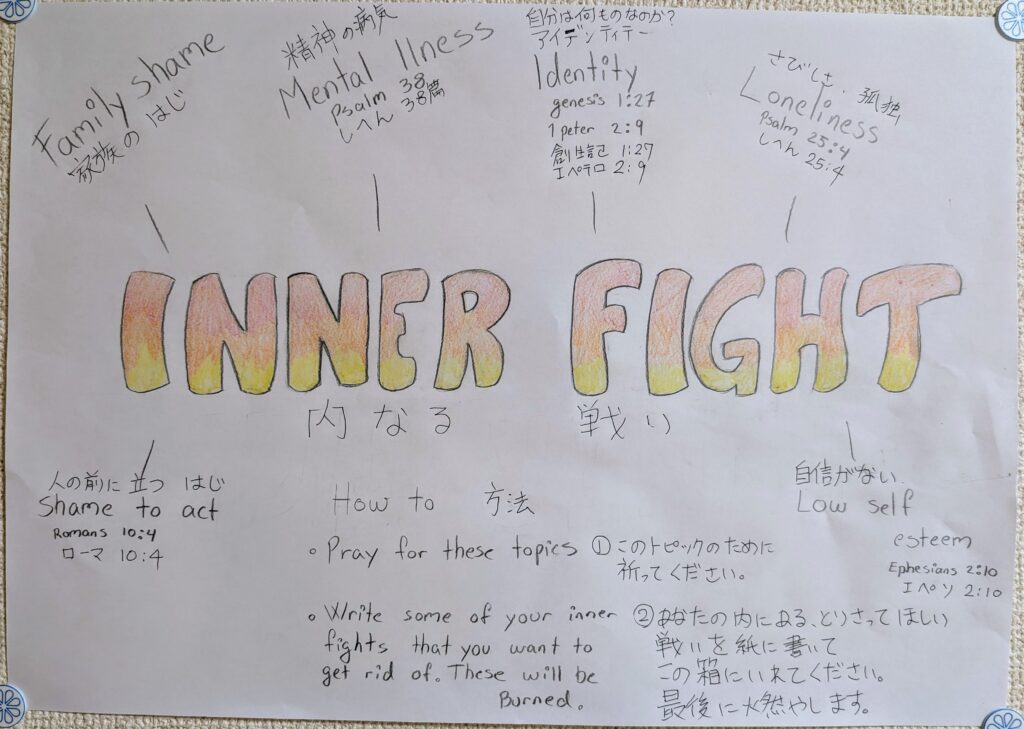 Family shame
家族の はじ
精神の病気
Mental Ilness
Psalm 38
しへん 38篇
自分は何ものなのか?
アイデンティテー
Identity
genesis 1:27
1 peter 2:9
創生記 1:27
Iペテロ 2:9
さびしさ、孤独
Loneliness
Psalm 25:4
しへん 25:4
INNER FIGHT
内なる 戦い
人の前に立つ はじ
Shame to act
Romans 10:4
ローマ 10:4
自信がない
Low self
esteem
Ephesians 2:10
エペソ 2:10
How to 方法
• Pray for these topics
①このトピックのために
祈ってください。
• Write some of your inner
fights that you want to
get rid of. These will be
Burned.
②あなたの内にある、とりさってほしい
戦いを紙に書いて
この箱にいれてください。
最後に燃やします。